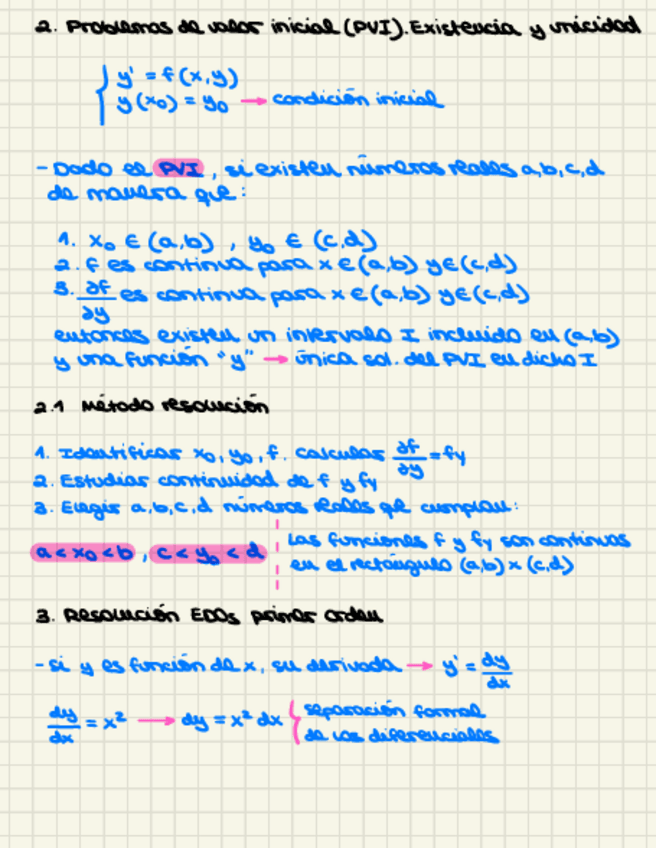 2. Problemas de valor inicial (PVI). Existencia y unicidad
y' = f(x,y)
y(x₀) = y₀ → condición inicial
- Dado el PVI, si existen números reales a,b,c,d
de manera que:
1. x₀ ∈ (a,b), y₀ ∈ (c,d)
2. f es continua para x ∈ (a,b) y ∈ (c,d)
3. ∂f/∂y es continua para x ∈ (a,b) y ∈ (c,d)
entonces existen un intervalo I incluido en (a,b)
y una función "y" → única sol. del PVI en dicho I
2.1 Método resolución
1. Identificar x₀, y₀, f. Calcular ∂f/∂y = fy
2. Estudiar continuidad de f y fy
3. Elegir a,b,c,d números reales qe cumplan:
a < x₀ < b, c < y₀ < d
Las funciones f y fy son continuas
en el rectángulo (a,b) x (c,d)
3. Resolución EDOs primer orden
- Si y es función de x, su derivada → y' = dy/dx
dy/dx = x² → dy = x² dx
separación formal
de los diferenciales